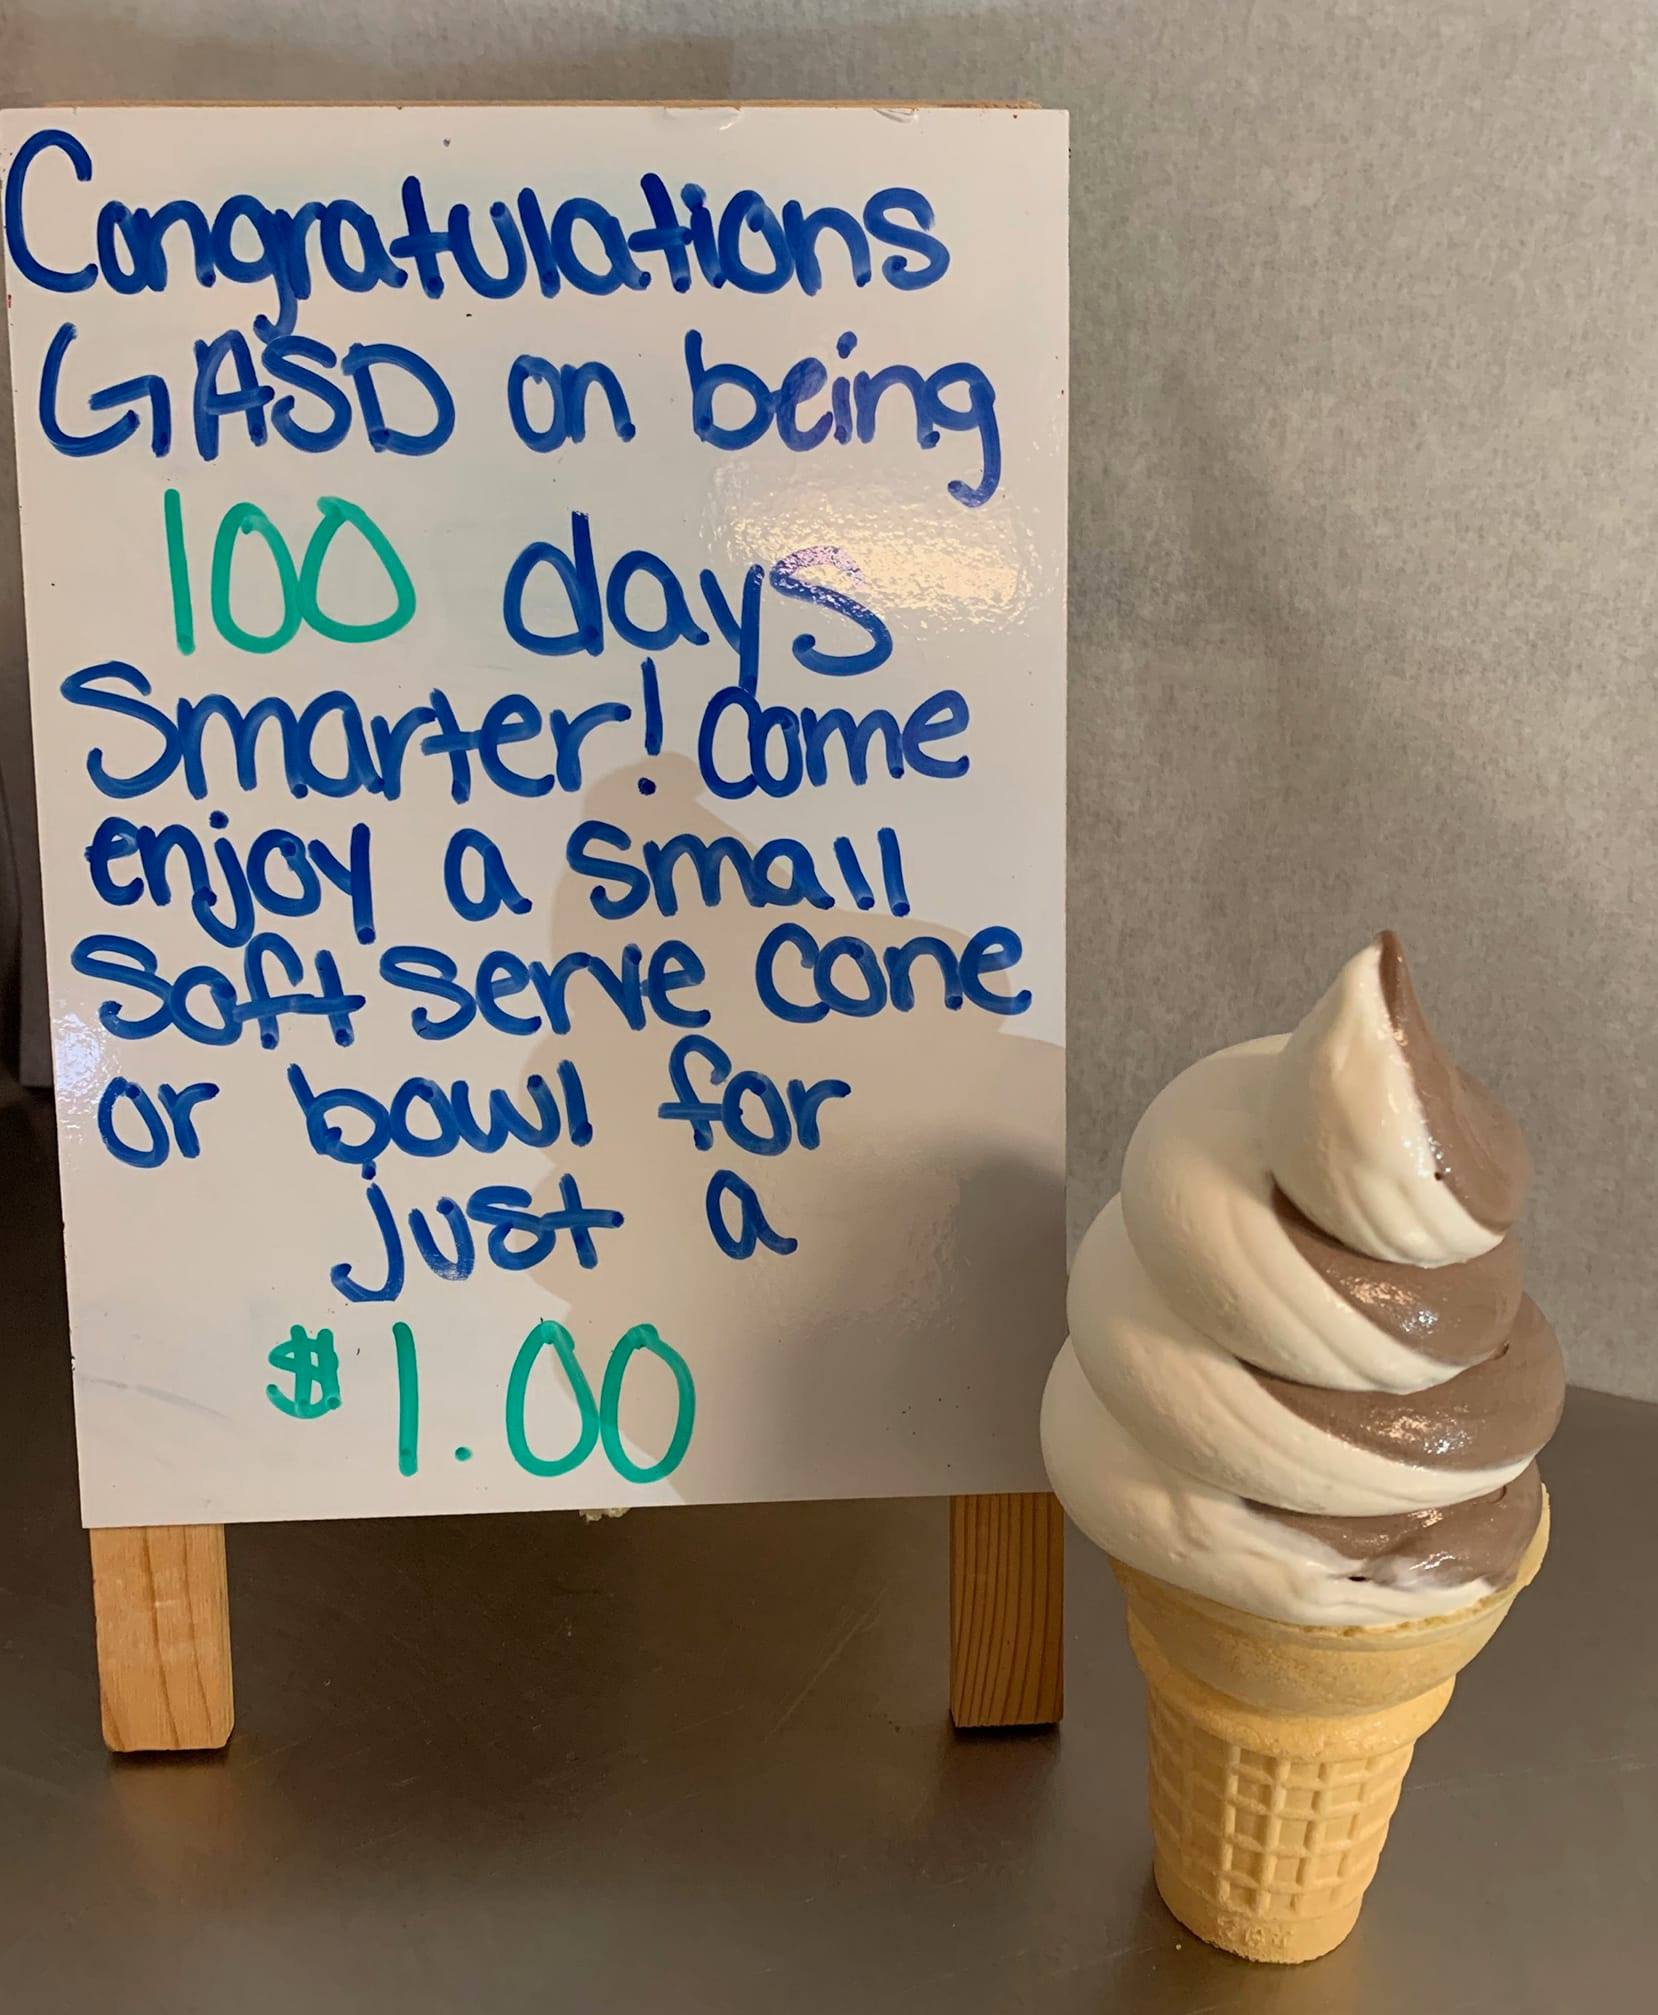 Congratulations
GASD on being
100 days
Smarter! Come
enjoy a small
Soft serve cone
or bowl for
just a
$1.00